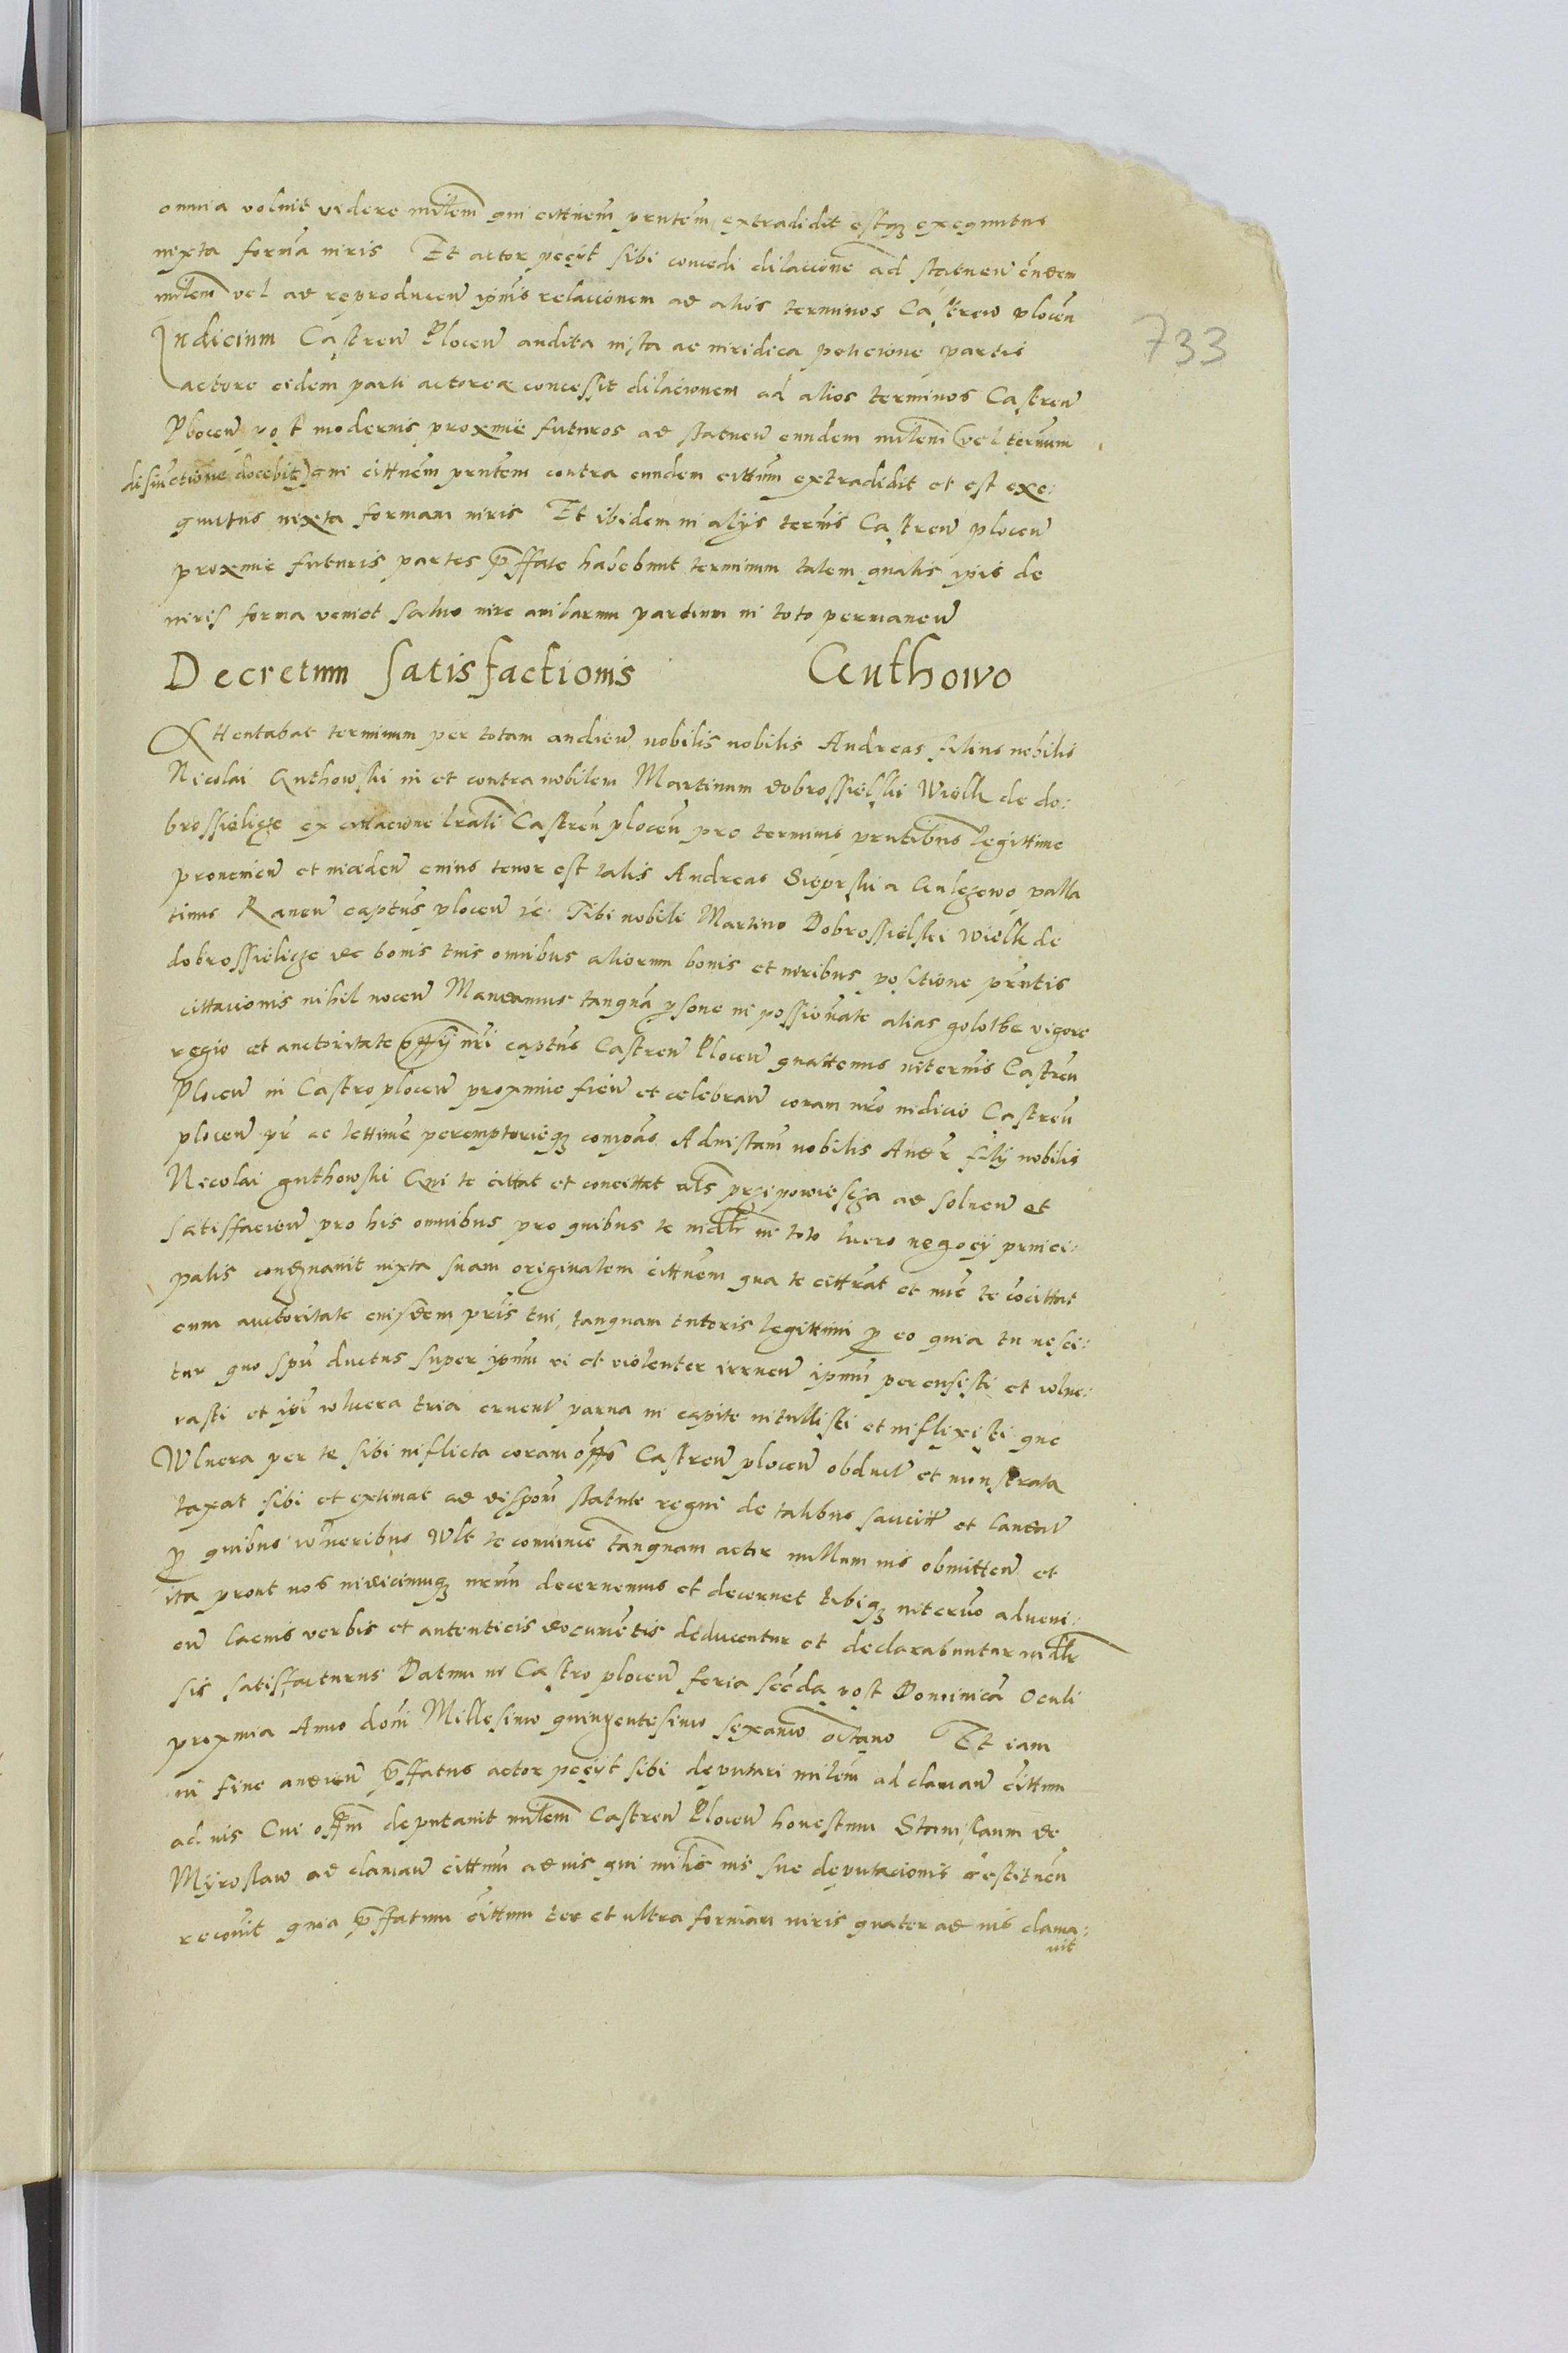 omnia voluit videre miltem qui cittnem prntem extradidit estqz exequutus
iuxta forma iuris Et actor peciit sibi concedi dilacione ad statuen eundem
miltem vel ad reproducen ipius relacionem ad alios terminos Castren plocen
Iudicium Castren Plocen audita iusta ac iuridica peticione partis
actore eidem parti actoree concessit dilacionem ad alios terminos Castren
Plocen post modernis proxime futuros ad statuen eundem miltem (vel
docebit) qui cittnem prntem contra eundem cittum extradidit et est exe:
quutus iuxta formam iuris Et ibidem in alijs termis Castren plocen
proxime futuris partes pffate habebunt terminum talem qualis ipis de
iuris forma veniet salvo iure ambarum partium in toto permanen
Decretum satisfactionis Guthowo
Attentabat terminum per totam audien nobilis nobilis Andreas filius nobilis
Nicolai Guthowski in et contra nobilem Martinum dobrossielski Wielk de do:
brossielicze ex citacione lrali Castren plocen pro terminis prntibus legittime
provenien et inceden cuius tenor est talis Andreas Sieprski a Gulczewo palla
tinus Raven captus plocen rc: Tibi nobili Martino Dobrossielski Wielk de
dobrossielicze de bonis tuis omnibus aliorum bonis et iuribus positione prntis
cittacionis nihil nocen Mandamus tanquam psone in possionate alias golothe vigore
regio et auctoritate offij nri captus Castren Plocen quattenus in termis Castren
Plocen in Castro plocen proxime fien et celebran coram nro iudicio Castren
plocen pr ac lettime peremptorieqz compas Ad instam nobilis Andr filij nobilis
Nicolai guthowski Qui te cittat et concittat als przipowiescza ad solven et
satisfacien pro his omnibus pro quibus te in toto lucro negocij princi:
palis condemnavit iuxta suam originalem cittnem qua te cittrat et nuc te cocittat
cum auctoritate eiusdem pris tui, tanquam tutoris legittimi p eo quia tu nesci:
tur quo spu ductus super ipum vi et violenter irruen ipum percussisti et vulne:
rasti et ipi wlnera tria cruent parva in capite intullisti et inflixisti que
Wlnera per te sibi inflicta coram offo Castren plocen obduct et monstrata
taxat sibi et extimat ad dispom statute regni de talibus sancitt et laudat
p quibus wlneribus wlt te convince tanquam actor nullum ius obmitten et
ita prout nos iudiciumqz nrum decernemus et decernet tibiqz in termo adveni:
en lacius verbis et autenticis documetis deducentur et declarabuntur
sis satisfacturus Datum in Castro plocen feria secda post Dominica Oculi
proxima Anno domi Millesimo quingentesimo sexamo octavo Et iam
in fine audien pffatus actor peciit sibi deputari miltem ad claman cittum
ad ius Cui offm deputavit miltem Castren Plocen honestum Stanislaum de
Myroslaw ad claman cittum ad ius qui milis ius sue deputacionis restituen
recovit quia pffatum cittum ter et ultra formam iuris quater ad ius clama:
vit
733